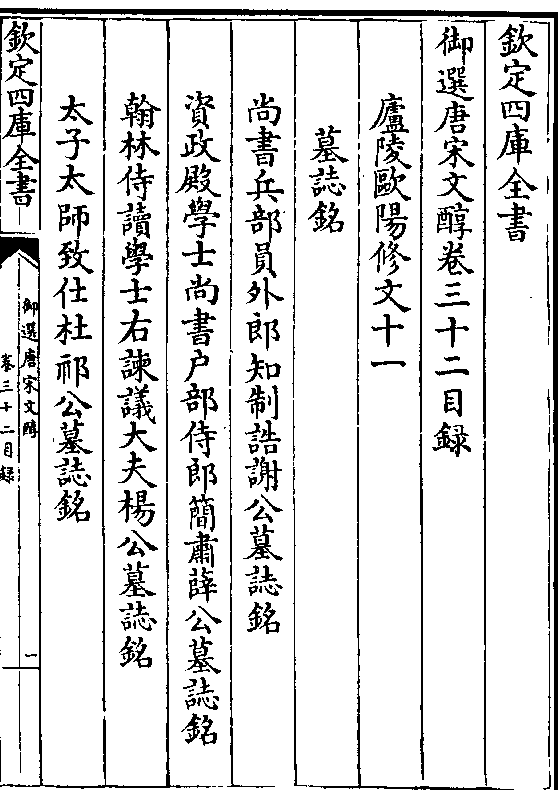 欽定四庫全書
御選唐宋文醇卷三十二目録
廬陵歐陽修文十一
墓誌銘
尚書兵部員外郎知制誥謝公墓誌銘
資政殿學士尚書户部侍郎簡肅薛公墓誌銘
翰林侍讀學士右諫議大夫楊公墓誌銘
太子太師致仕杜祁公墓誌銘
欽定四庫全書
御選唐宋文醇
卷三十二目録
一